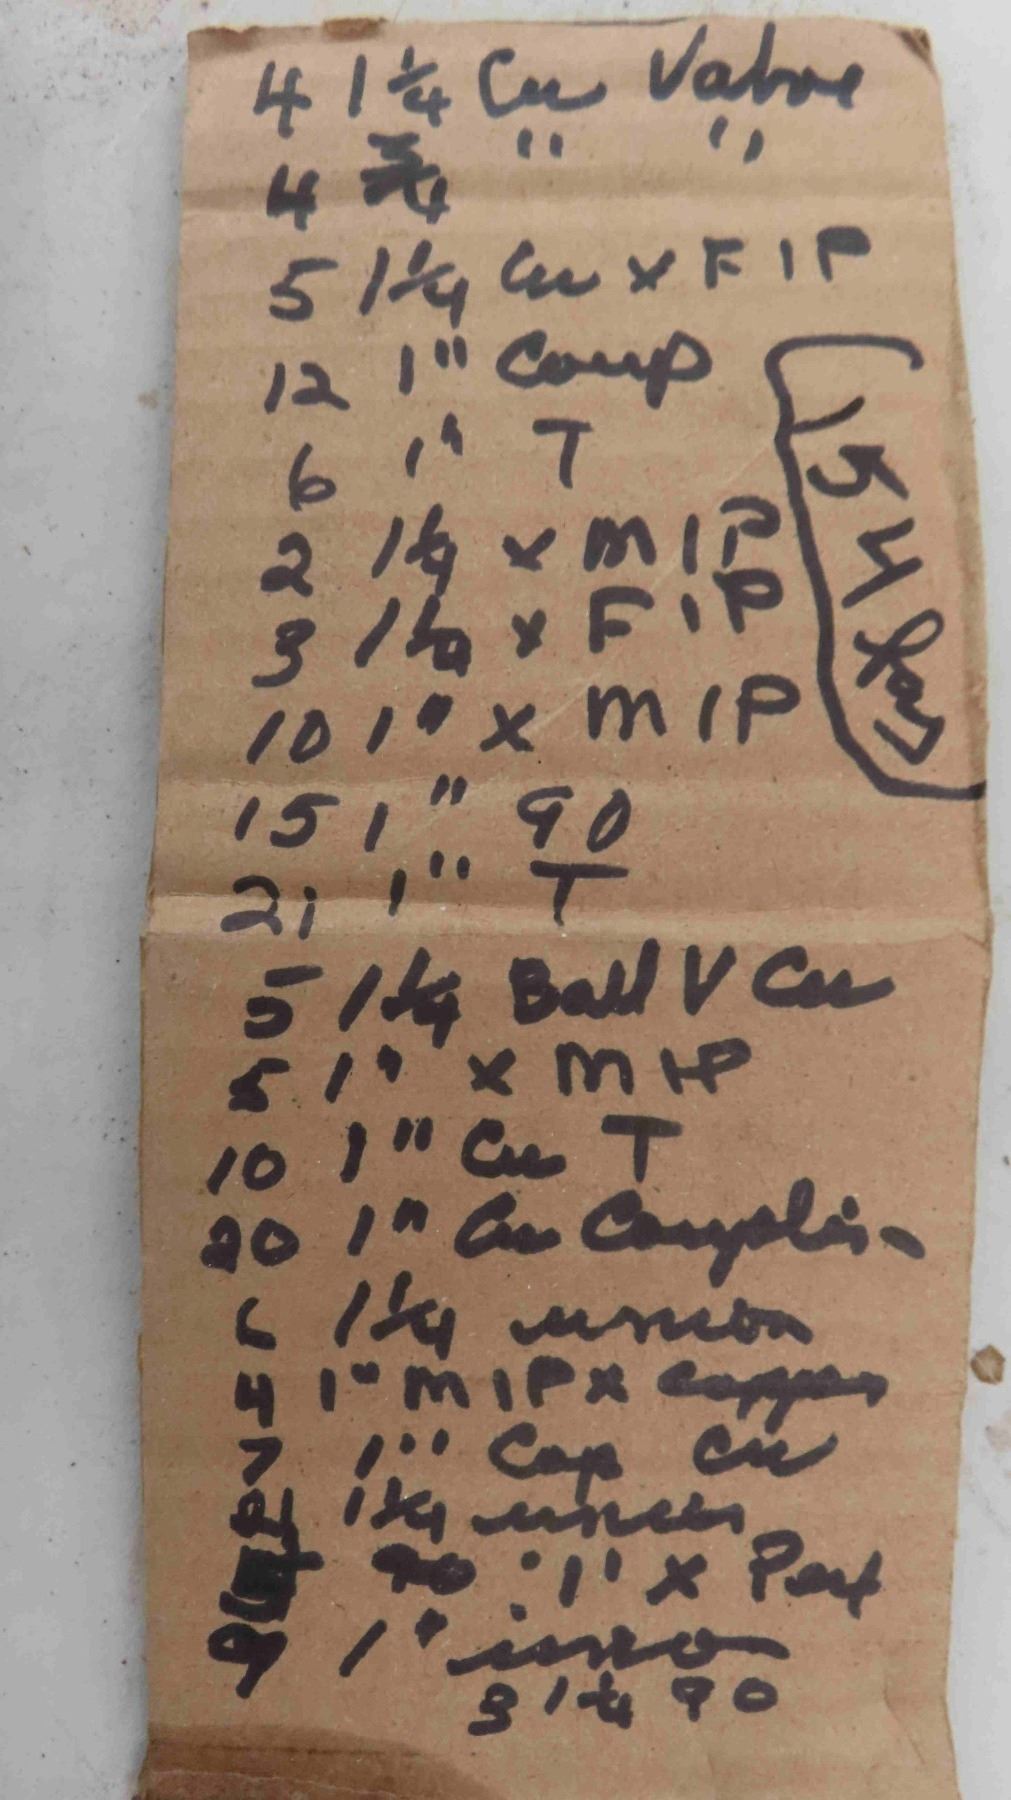 4 1 1/4 Cu Valve
4 3/4 " "
5 1 1/4 Cu x FIP
12 1" Coup
6 1" T
2 1 1/4 x MIP
3 1 1/4 x FIP
10 1" x MIP
15 1" 90
21 1" T
5 1 1/4 Ball V Cu
5 1" x MIP
10 1" Cu T
20 1" Cu Couplin
6 1 1/4 union
4 1" MIP x Copper
7 1" Cap Cu
2 1 1/4 union
90 1" x Pex
9 1" union
3 1 1/4 90
154